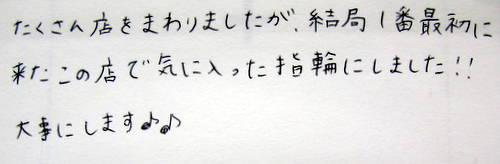 たくさん店をまわりましたが、結局1番最初に
来たこの店で気に入った指輪にしました!!
大事にします♪♪